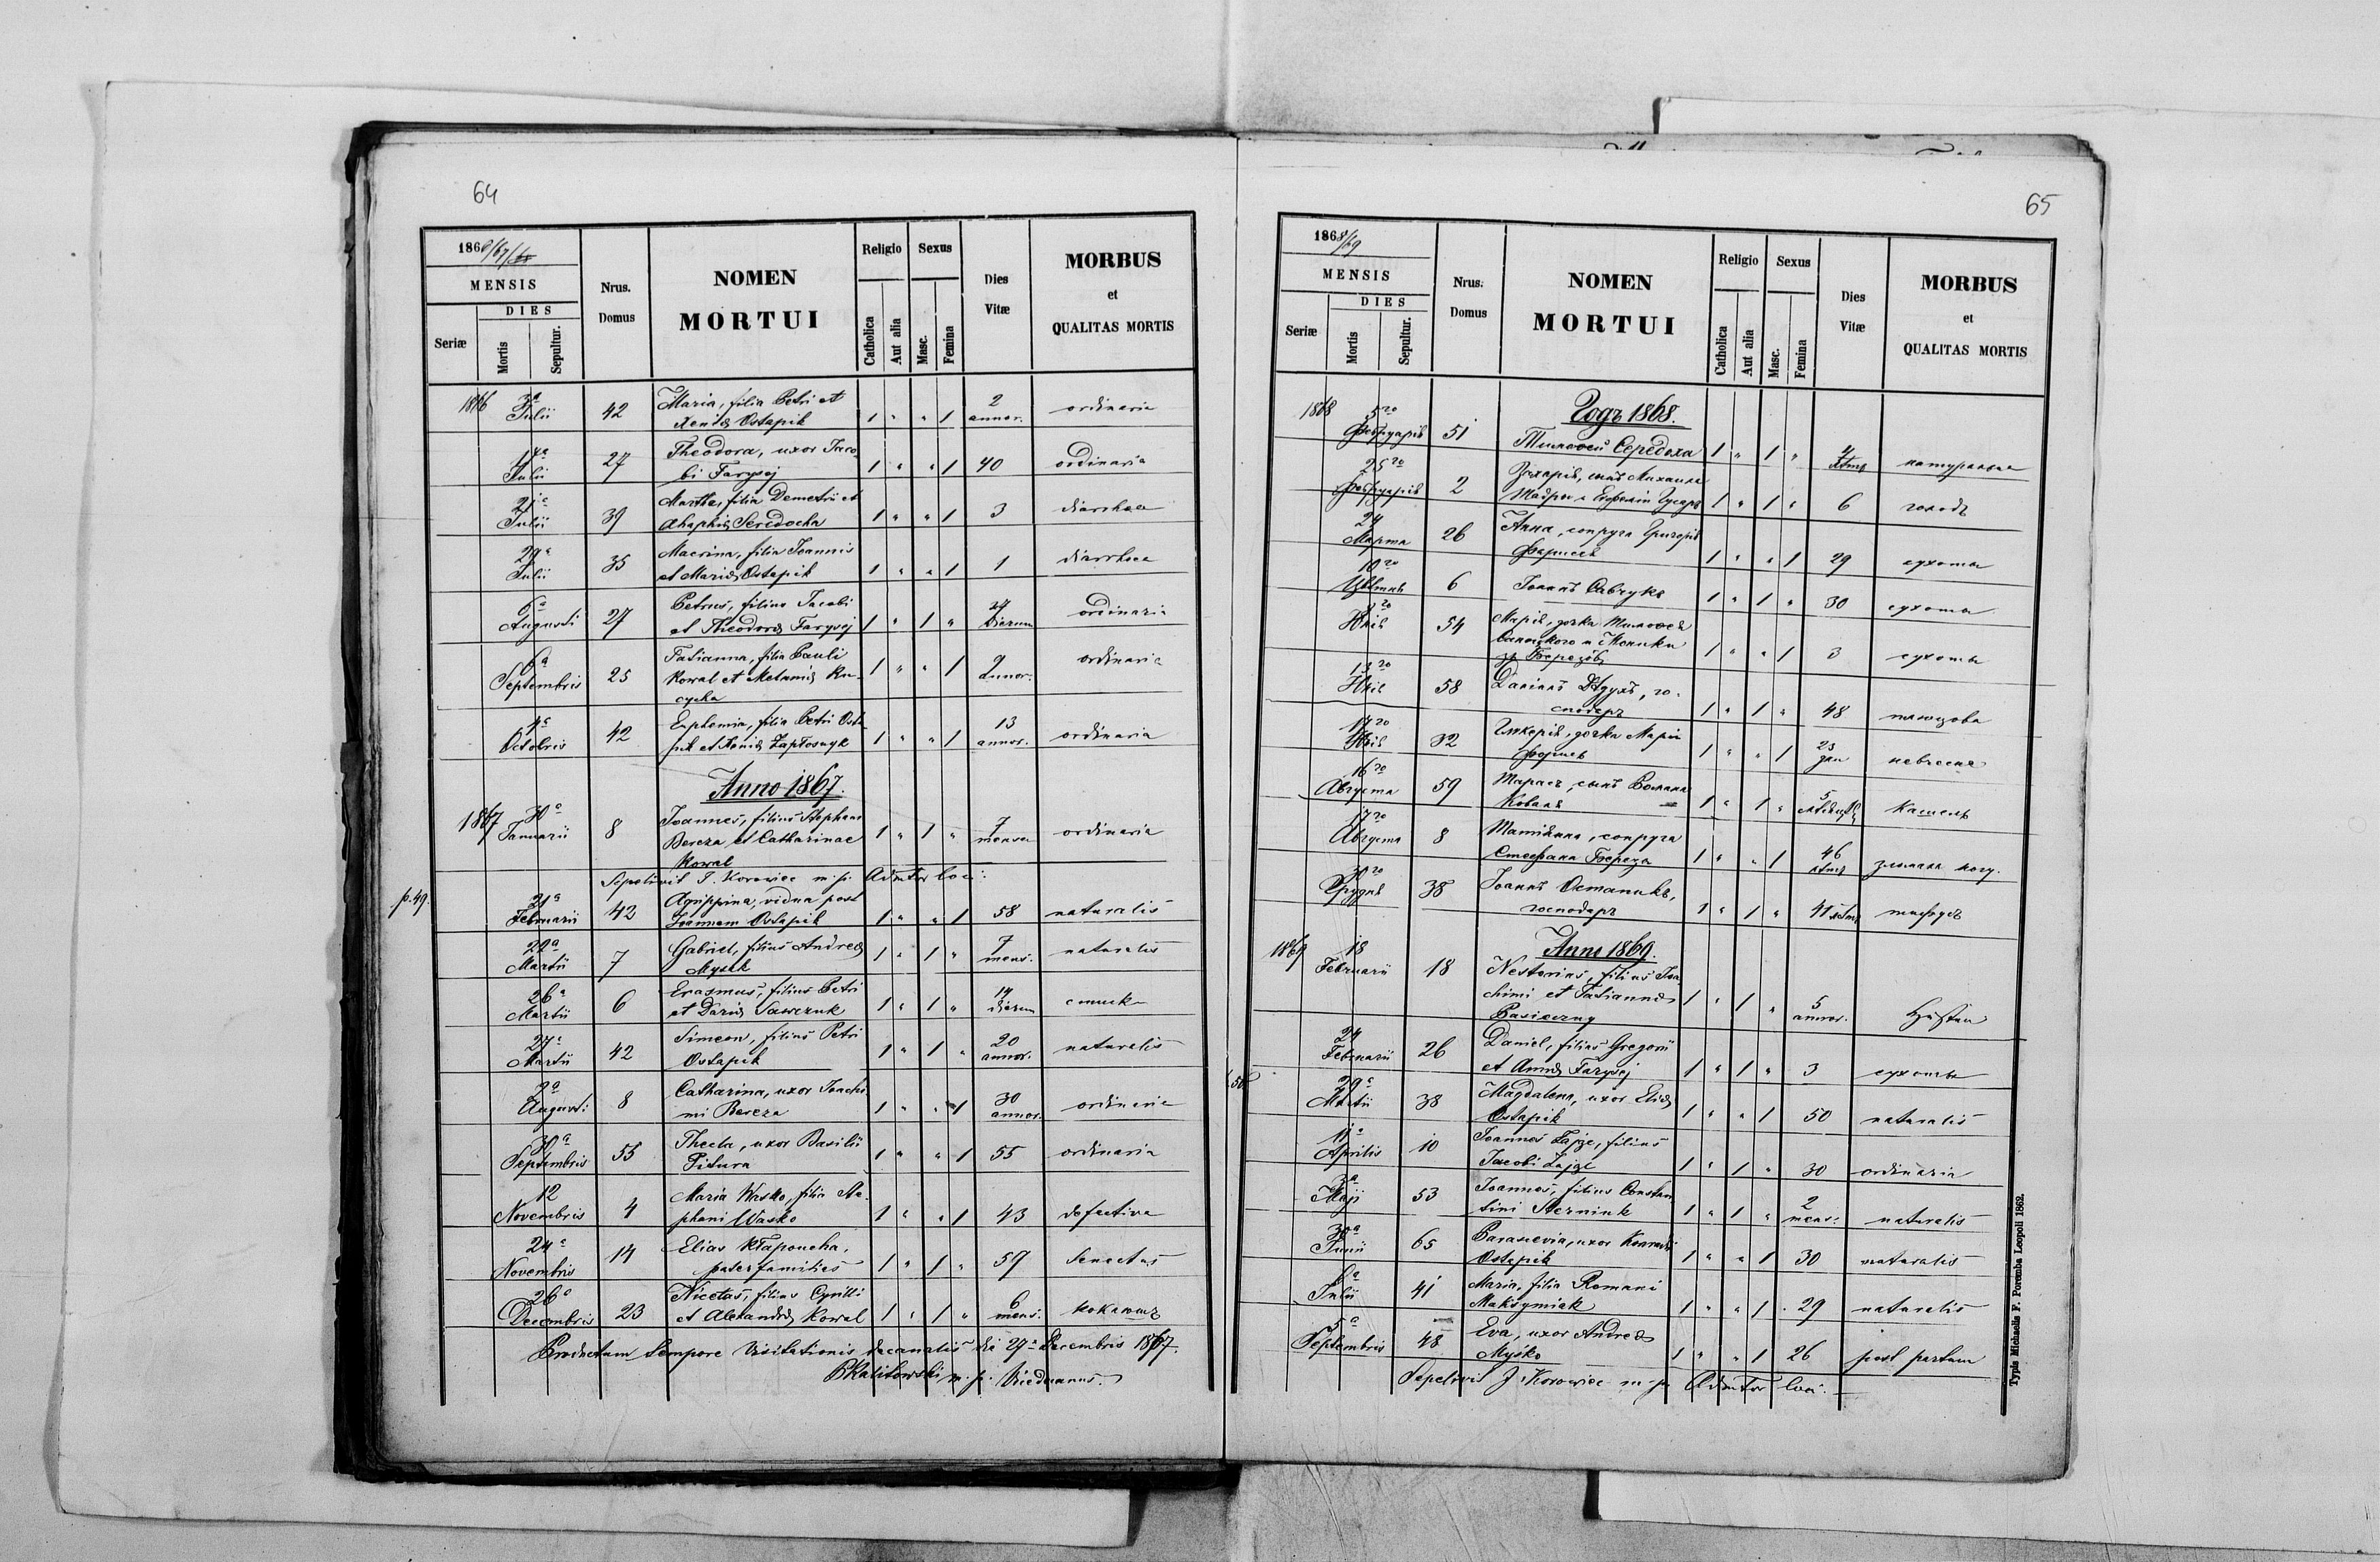 64
1866/67/68
MENSIS
DIES
Seriæ
Mortis
Sepultur.
Nrus.
Domus
NOMEN
MORTUI
Religio
Catholica
Aut alia
Sexus
Masc.
Femina
Dies
Vitæ
MORBUS
et
QUALITAS MORTIS
1866 3a Julii 42 Maria, filia Petri et Xeniæ Ostapik 1 " " 1 2 annor. ordinaria
Julii 27 Theodora, uxor Jacobi Farysej 1 " " 1 40 ordinaria
21a Julii 39 Martha, filia Demetrii et Ahaphiæ Seredocha 1 " " 1 3 diarrhaea
29a Julii 35 Macrina, filia Joannis et Mariæ Ostapik 1 " " 1 1 diarrhea
6a Augusti 27 Petrus, filius Jacobi et Theodoræ Farysej 1 " 1 " 27 dierum ordinaria
6a Septembris 25 Tatianna, filia Pauli Kowal et Melaniæ 1 " " 1 9 annor. ordinaria
4a Octobris 42 Euphemia, filia Petri Ostapik et Xeniæ 1 " " 1 13 annor. ordinaria
Anno 1867.
1867 30a Januarii 8 Joannes, filius Stephani Bereza et Catharinae Kowal 1 " 1 " 7 menses ordinaria
Sepelivit J. Korowiec m. p. Admtor loci:
p. 49.
21a Februarii 42 Agrippina, vidua post Joannem Ostapik 1 " " 1 58 naturalis
22a Martii 7 Gabriel, filius Andreæ 1 " 1 " 7 mens. naturalis
26a Martii 6 Erasmus, filius Petri et Dariæ Sawczuk 1 " 1 " 14 dierum
27a Martii 42 Simeon, filius Petri Ostapik 1 " 1 " 20 annor. naturalis
2a Augusti 8 Catharina, uxor Joachimi Bereza 1 " " 1 30 annor. ordinaria
30a Septembris 55 Thecla, uxor Basilii 1 " " 1 55 ordinaria
12 Novembris 4 Maria Wasko, filia Stephani Wasko 1 " " 1 43 defectiva
24a Novembris 14 Elias Kłapoucha, paterfamilias 1 " 1 " 59 Senectus
26a Decembris 23 Nicetas, filius Cyrilli et Alexandræ Kowal 1 " 1 " 6 mens. коклюшъ
Productum tempore Visitationis decanalis die 29a Decembris 1867.
m. p. Vicedecanus.
65
1868/69
MENSIS
DIES
Seriæ
Mortis
Sepultur.
Nrus.
Domus
NOMEN
MORTUI
Religio
Catholica
Aut alia
Sexus
Masc.
Femina
Dies
Vitæ
MORBUS
et
QUALITAS MORTIS
Годъ 1868.
1868 5го Февруарія 51 Тимоѳей Середоха 1 " 1 "
25го Февруарія 2 Захарія, сынъ Михаила 1 " 1 " 6 голодъ
24 Марта 26 Анна, супруга Григорія Фарисей 1 " " 1 29 сухоты
10го Цвѣтня 6 Іоаннъ Савчукъ 1 " 1 " 30 сухоты
Юнія 54 Марія, дочка Тимоѳея 1 " " 1 3 сухоты
13го Юнія 58 Даніилъ господарь 1 " 1 " 48
17го Юлія 32 Гликерія, дочка Маріи 1 " " 1 23 дни
16го Августа 59 Тарасъ, сынъ Романа Коваль 1 " 1 " 5 кашель
17го Августа 8 Татіанна, супруга Стефана Береза 1 " " 1 46 лѣтъ зломала ногу.
30го Грудня 38 Іоаннъ Остапикъ, господарь 1 " 1 " 41 лѣтъ тифусъ
Anno 1869.
1869 18 Februarii 18 Nestorius, filius Joachimi et Tatiannæ 1 " 1 " 5 annor. Husten
24 Februarii 26 Daniel, filius Gregorii et Annæ Farysej 1 " 1 " 3 сухоты
29a Martii 38 Magdalena, uxor Eliæ Ostapik 1 " " 1 50 naturalis
11a Aprilis 10 Joannes Zajze, filius Jacobi Zajze 1 " 1 " 30 ordinaria
3a Maji 53 Joannes, filius Constantini 1 " 1 " 2 mens: naturalis
30a Junii 65 Parascevia, uxor Konradi Ostapik 1 " " 1 30 naturalis
6a Julii 41 Maria, filia Romani Maksymiak 1 " " 1 29 naturalis
5a Septembris 48 Eva, uxor Andreæ Myśko 1 " " 1 26 post partum
Sepelivit J. Korowiec m. p. Admtor loci.
Typis Michaelis F. Poremba Leopoli 1862.